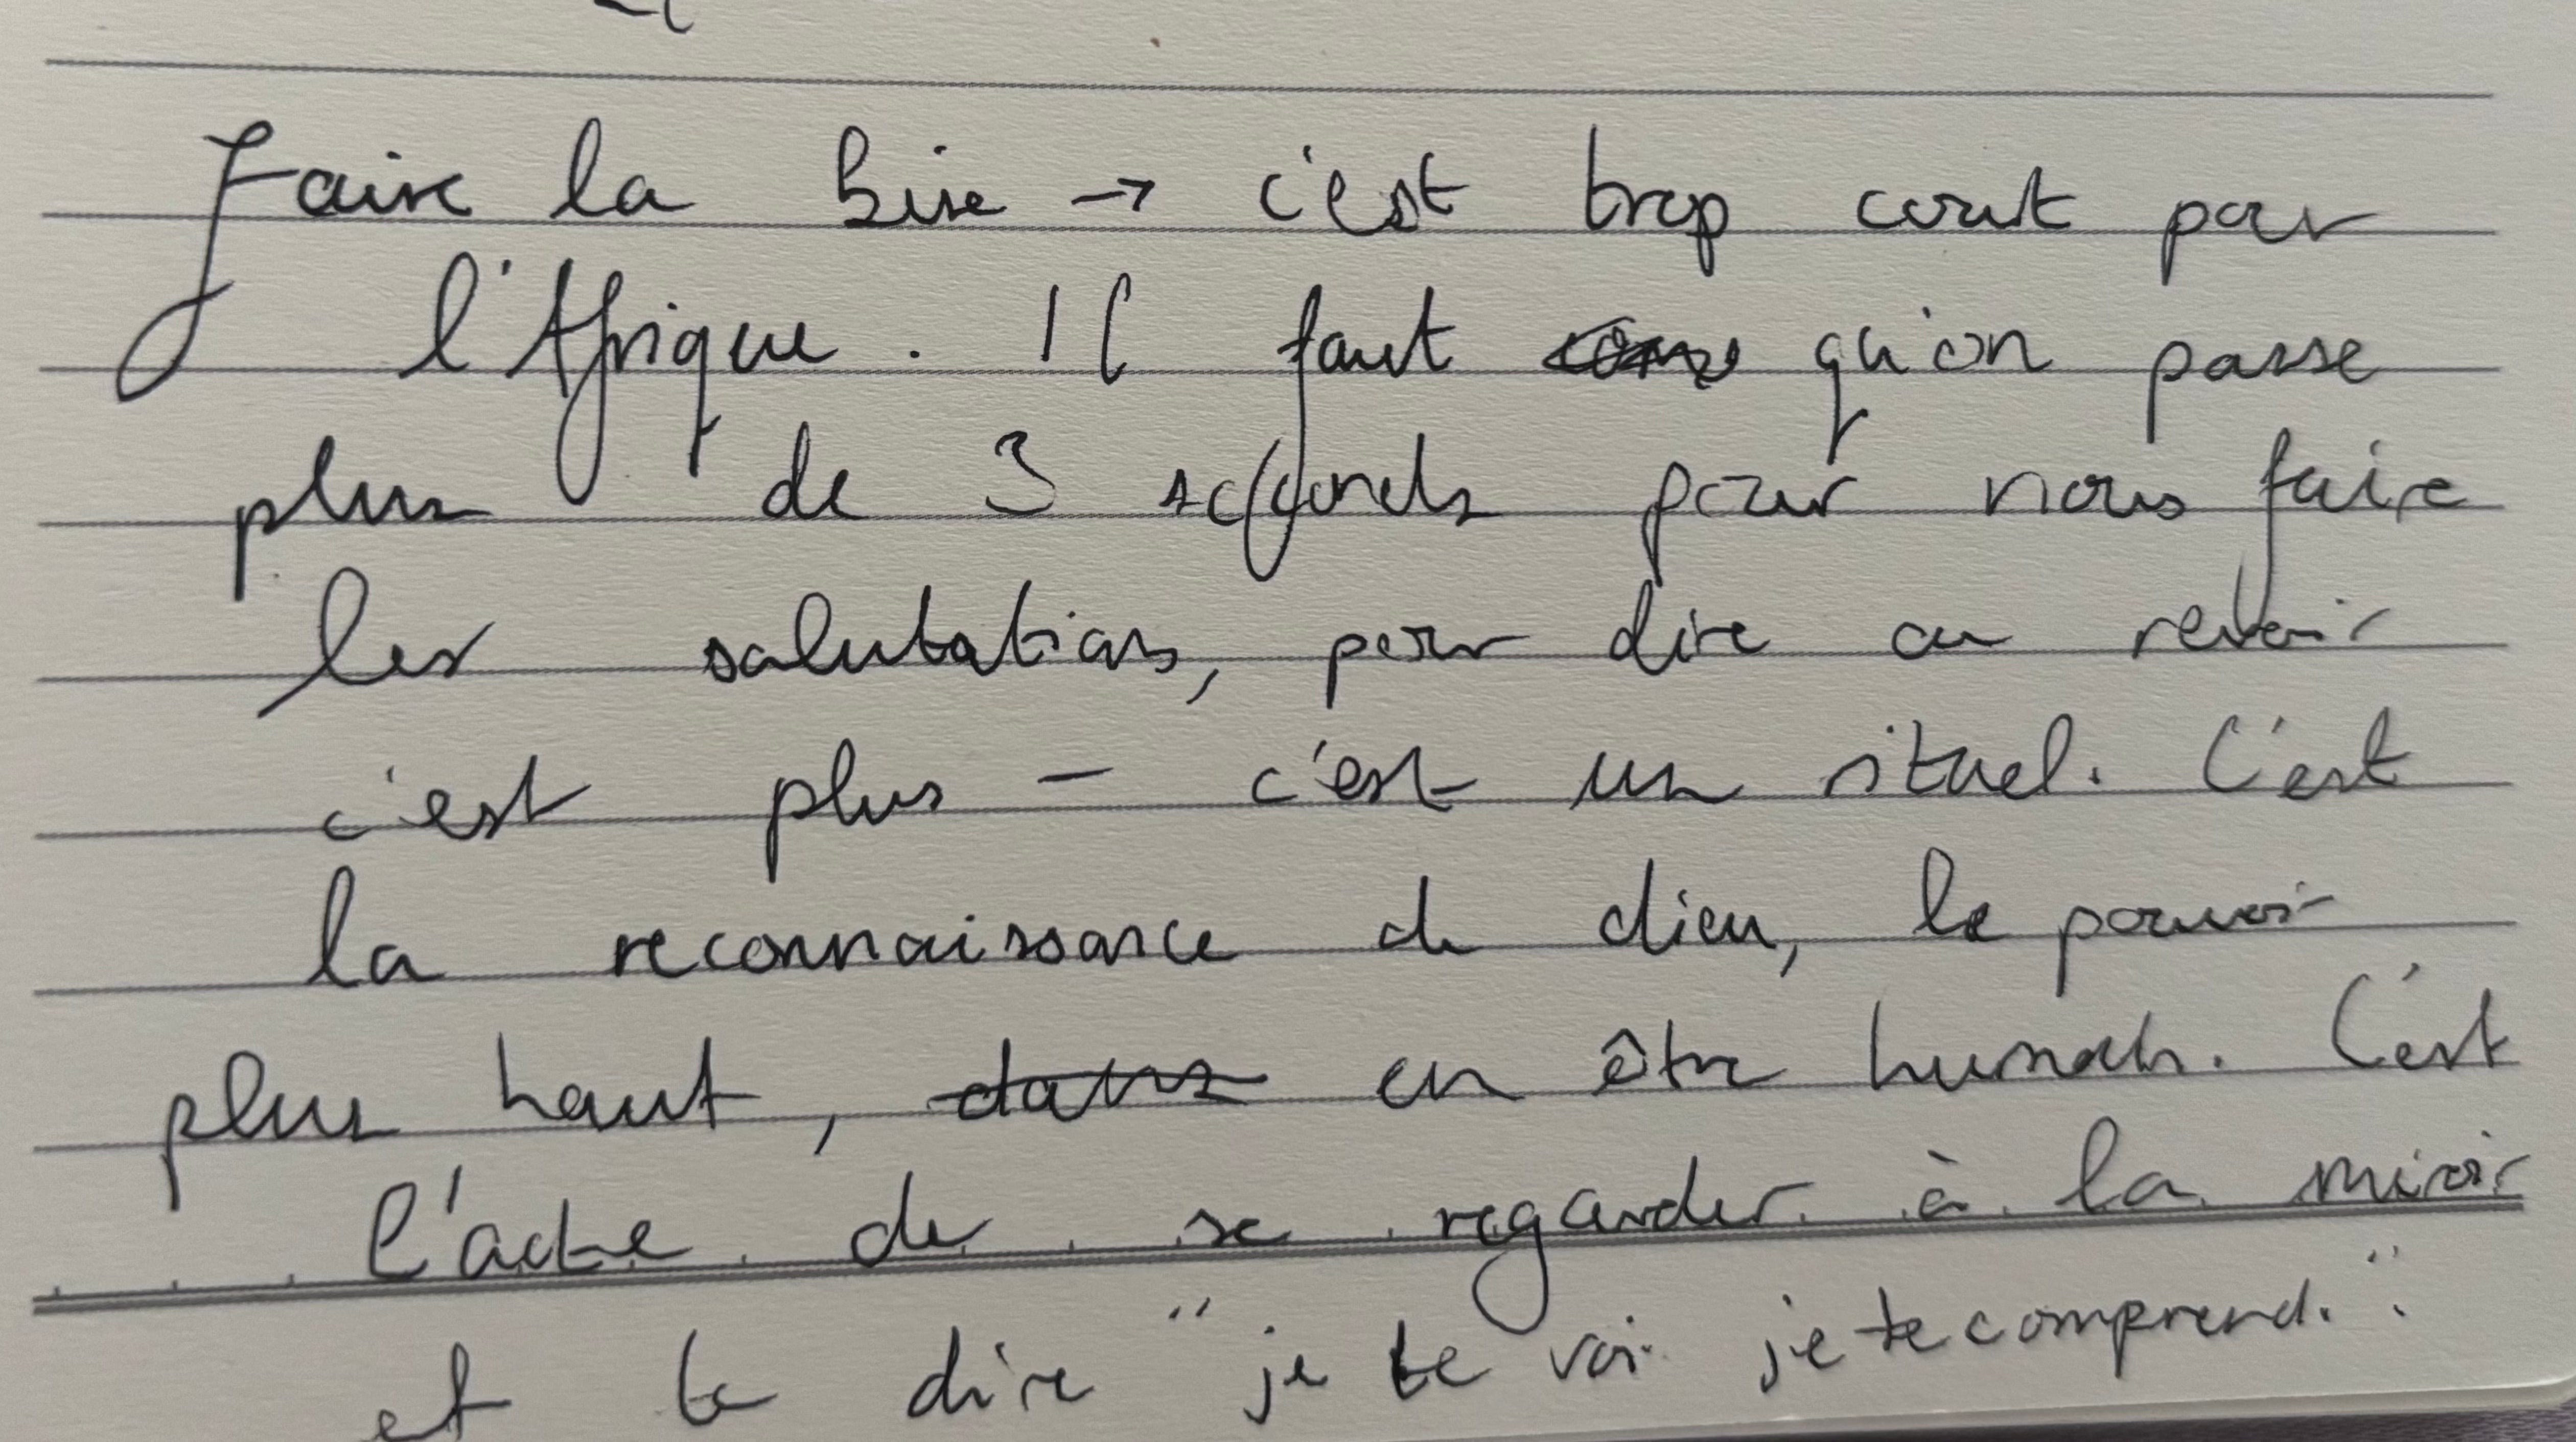 Faire la bise → c'est trop court pour
l'Afrique. Il faut qu'on passe
plus de 3 seconds pour nous faire
les salutations, pour dire au revoir
c'est plus – c'est un rituel. C'est
la reconnaissance de dieu, le pouvoir
plus haut, dans en être humain. C'est
l'acte de se regarder à la miroir
et te dire "je te voi je te comprend."